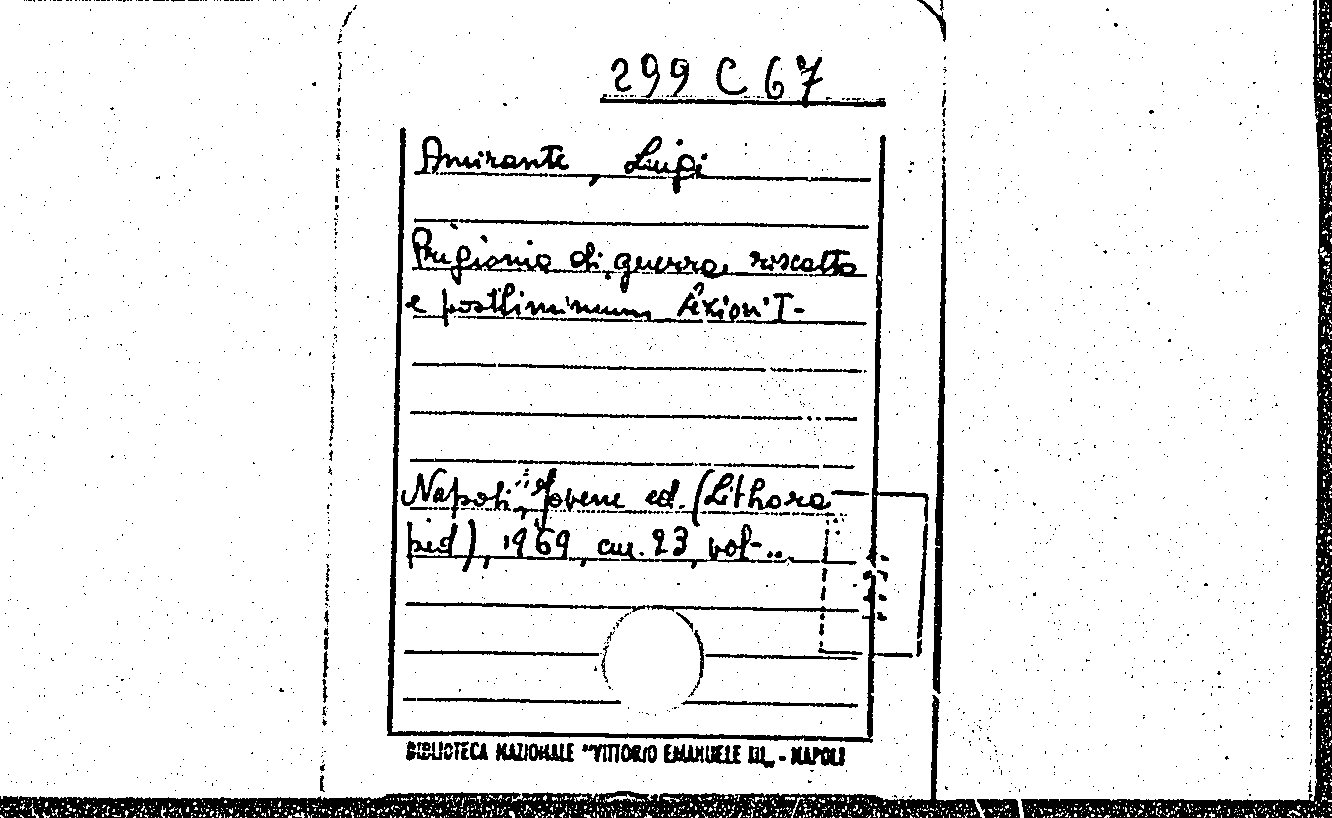 299 C 67
Amirante, Luigi
Prigionia di guerra, riscatto
e postliminium Lezioni I-
Napoli, Jovene ed. (Lithora
pid), 1969, cm. 23, vol-...
BIBLIOTECA NAZIONALE "VITTORIO EMANUELE III„ - NAPOLI